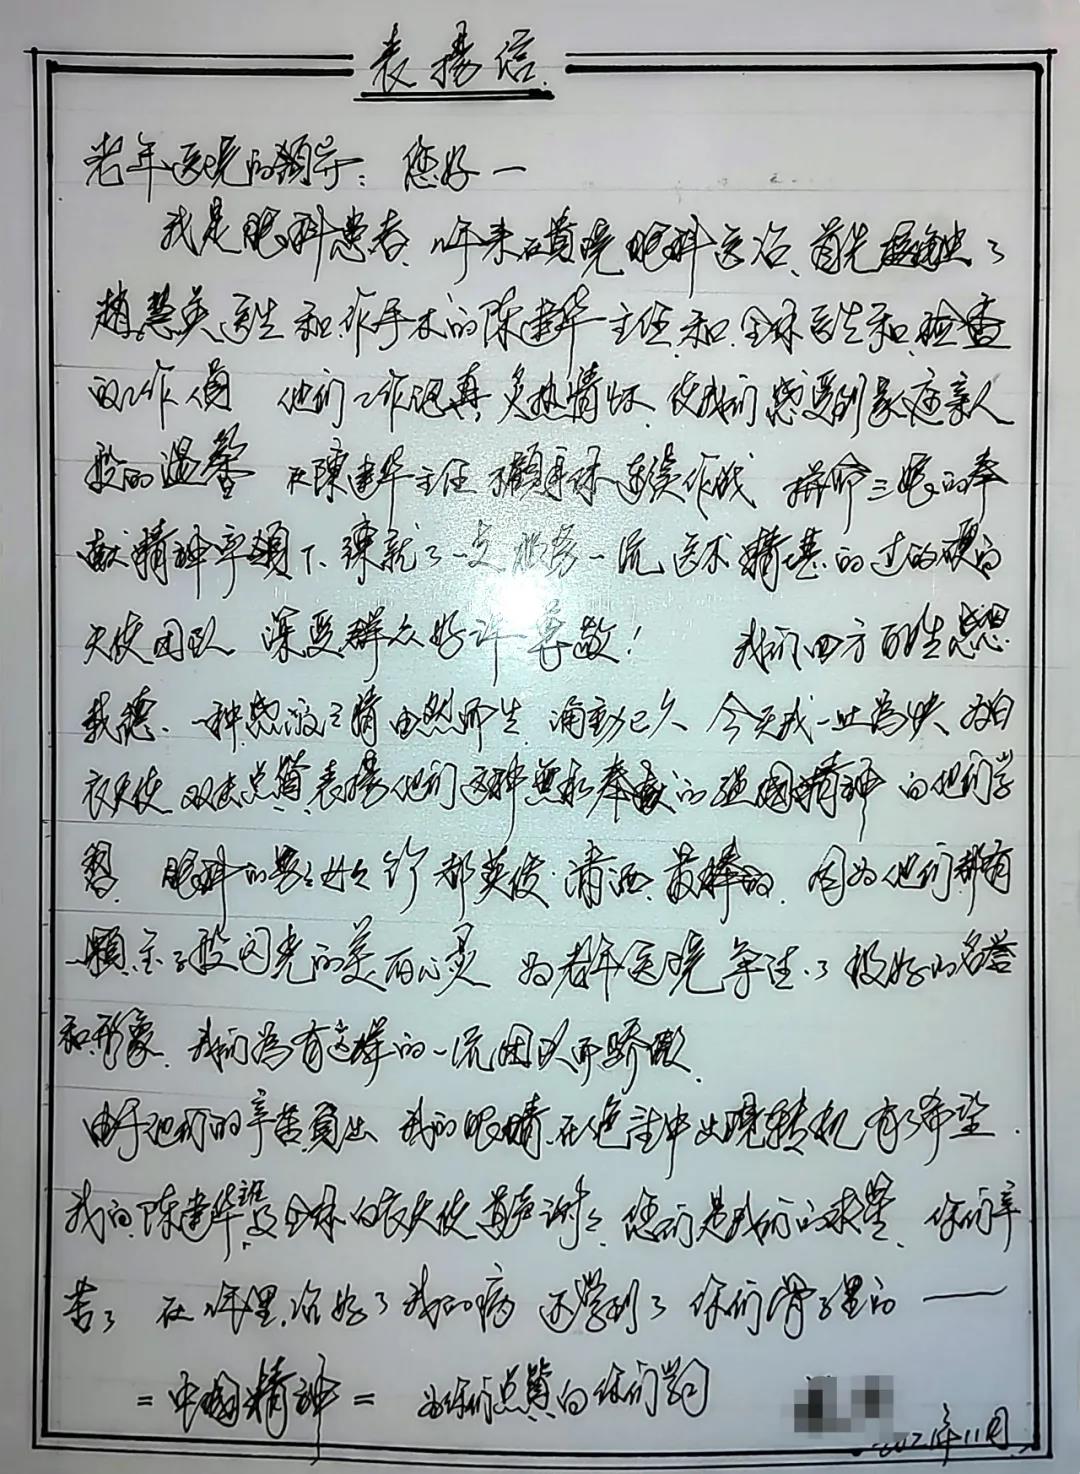 表扬信
老年医院的领导：您好一
我是眼科患者，2年来在贵院眼科医治，首先接触了
趙慧英医生和作手术的陈建华主任，和全体医生和检查
的工作人员 他们工作认真 热情 使我们感受到家庭亲人
般的温馨 在陳建华主任不顧身体 连续作战 拼命三娘的奉
献精神带領下，练就了一支服务一流 医术精湛的过的硬的
天使团队 深受群众好评尊敬！ 我们四方百姓感恩
戴德、一种感激之情由然而生 涌動已久 今天我 為快 为白
衣天使双手点赞 表揚他们这种無私奉献的强國精神 向他们学
習 眼科的男男女女 个个都英俊·潇洒、最棒的，因为他们都有
一颗金子般闪光的美丽心灵 为老年医院争得了极好的名誉
和形象，我们為有这样的一流团队而骄傲
由于他们的辛苦負出 我的眼睛在绝望中出現转机 有了希望.
我向陈建华主任及全体白衣天使 道声谢谢 您们是我们的救星 你们辛
苦了 在2年里，治好了我的病 还学到了你们骨子里的——
=中國精神= 为你们点赞向你们学习
2021年11月